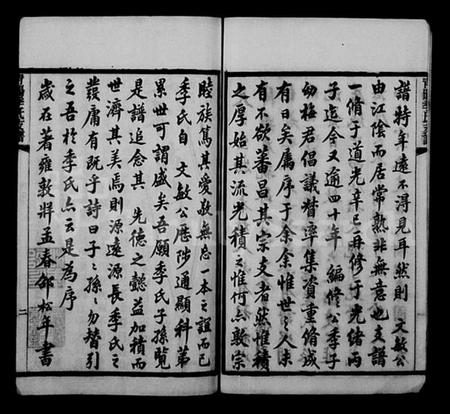 譜特年遠不得見耳然則 文敏公
由江陰而居常熟非無意也支譜
一脩于道光辛巳再修于光緒丙
子迄今又逾四十年 編修公季子
幼梅君倡議督率集資重脩成
有日矣屬序于余余惟世之人未
有不欲蕃昌其宗支者然惟積
之厚始其流光積之惟何亦敦宗
睦族篤其愛敬無忘一本之誼而已
季氏自 文敏公歷陟通顯科第
累世可謂盛矣吾願季氏子孫覽
是譜追念其 先德之懿益加積而
世濟其美焉則源遠源長季氏之
發庸有既乎詩曰子子孫孫勿替引
之吾於季氏亦云是為序
歲在著雍敦牂孟春邵松年書
二